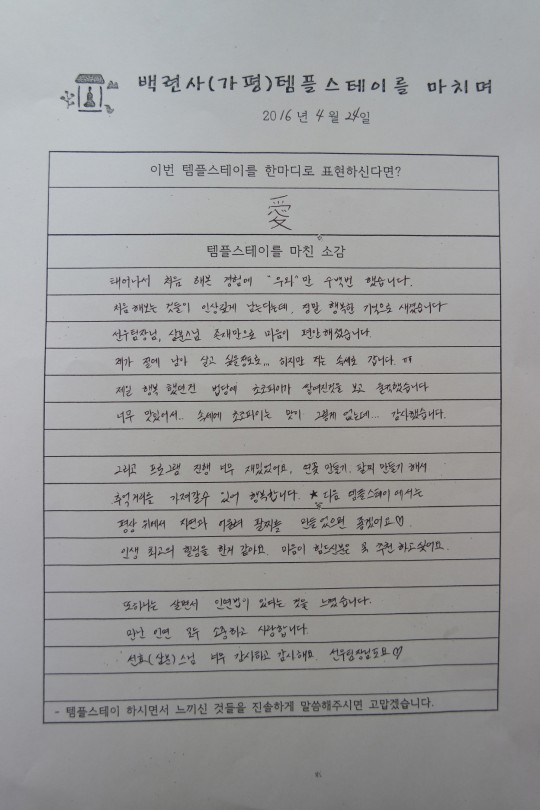 백련사(가평)템플스테이를 마치며
2016년 4월 24일
이번 템플스테이를 한마디로 표현하신다면?
愛
템플스테이를 마친 소감
태어나서 처음 해본 경험에 "우와"만 수백번 했습니다.
처음 해보는 것들이 인상깊게 남는다는데, 정말 행복한 기억으로 새겼습니다
선우팀장님, 스님 존재만으로 마음이 편안해졌습니다.
제가 절에 남아 살고 싶을정도로... 하지만 저는 속세로 갑니다. ㅠㅠ
제일 행복했던건 법당에 초코파이가 쌓여진것을 보고 놀랐습니다
너무 맛있어서.. 속세에 초코파이는 맛이 그렇게 없는데... 감사했습니다.
그리고 프로그램 진행 너무 재밌었어요, 연꽃 만들기, 팔찌 만들기 해서
추억거리를 가져갈수 있어 행복합니다. ★다음 템플스테이에서는
평상 위에서 자연과 어울려 팔찌를 만들었으면 좋겠어요♡.
인생 최고의 힐링을 한거 같아요. 마음이 힘드신분은 꼭 추천하고싶어요.
또하나는 살면서 인연법이 있다는 것을 느꼈습니다.
만난 인연 모두 소중하고 사랑합니다.
스님 너무 감사하고 감사해요. 선우팀장님도요♡
- 템플스테이 하시면서 느끼신 것들을 진솔하게 말씀해주시면 고맙겠습니다.